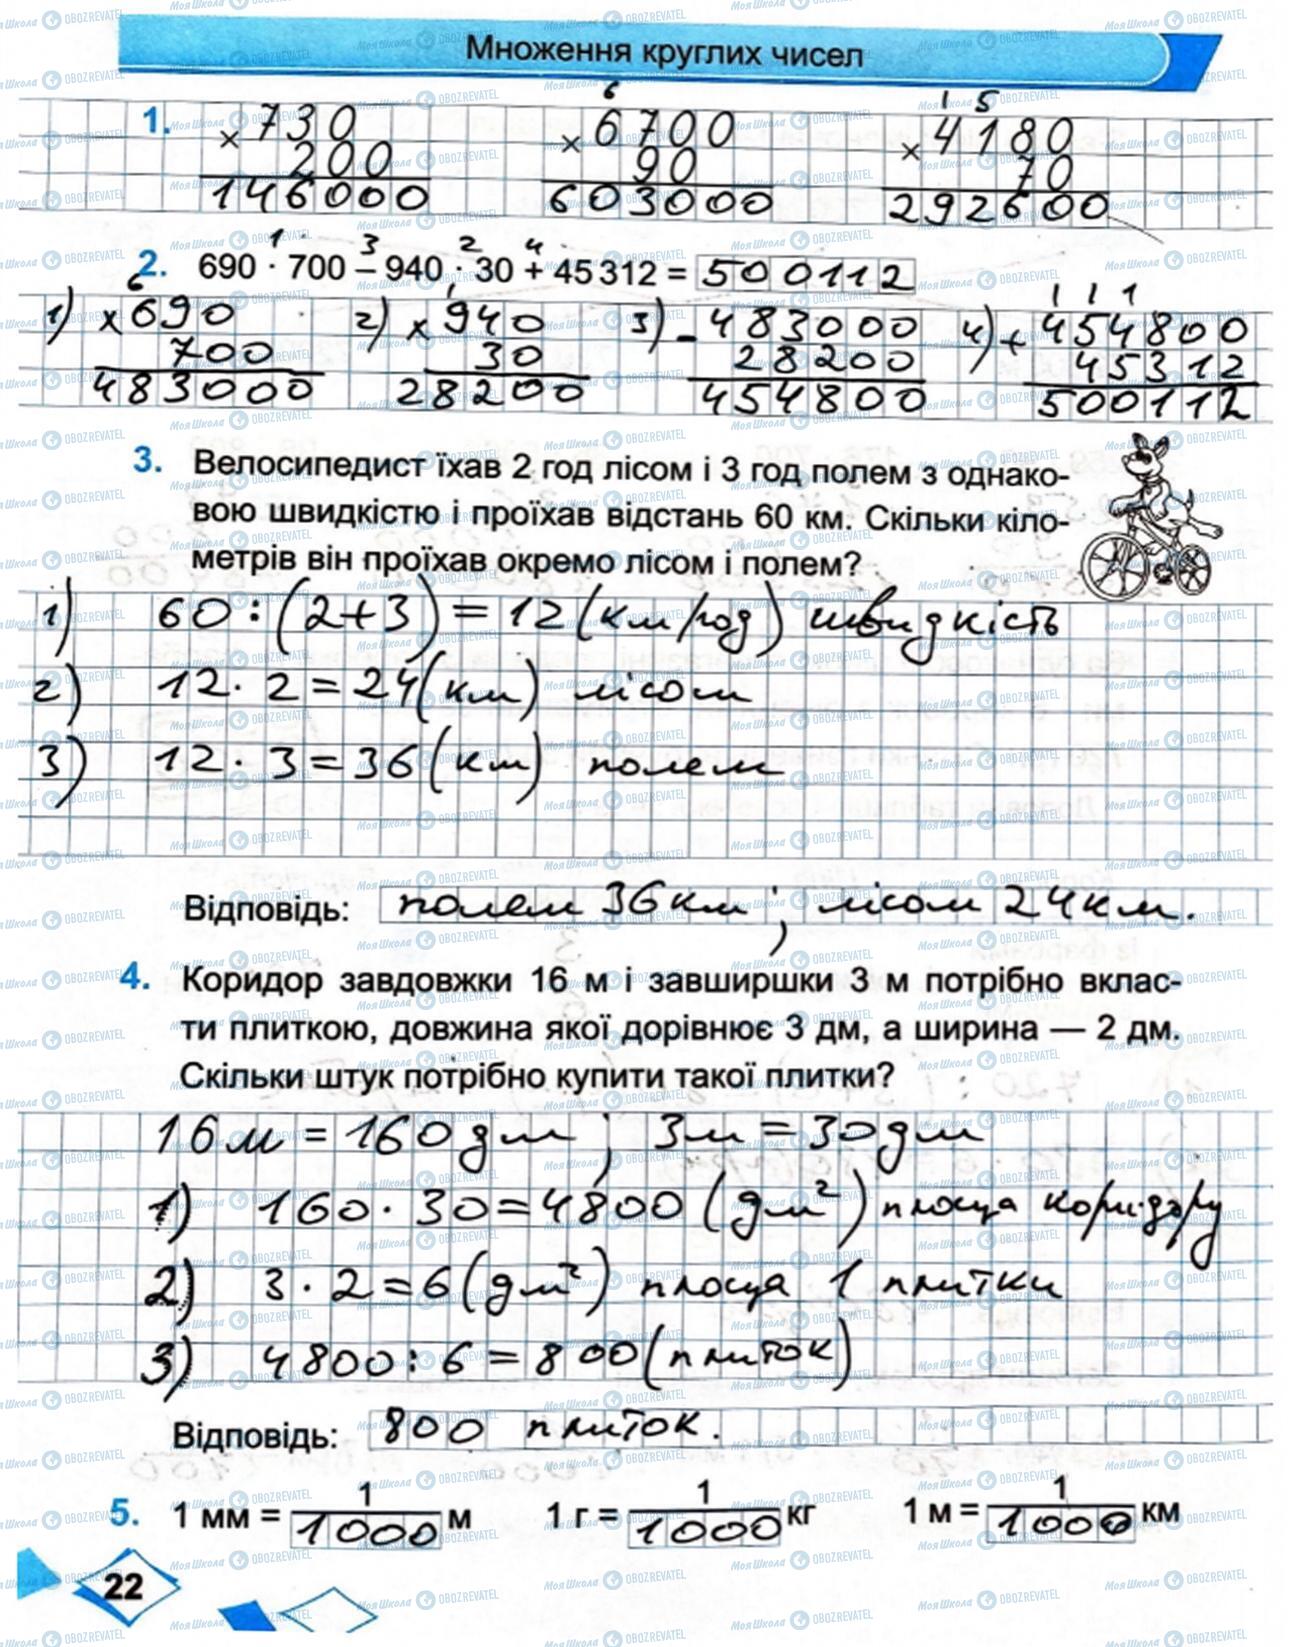 Множення круглих чисел
1. × 730 200 146000
6 × 6700 90 603000
1 5 × 4180 70 292600
1 3 2 4
2. 690 · 700 – 940 · 30 + 45 312 = 500112
1) 6 × 690 700 483000
2) 1 × 940 30 28200
3) – 483000 28200 454800
4) 1 1 1 + 454800 45312 500112
3. Велосипедист їхав 2 год лісом і 3 год полем з однако-
вою швидкістю і проїхав відстань 60 км. Скільки кіло-
метрів він проїхав окремо лісом і полем?
1) 60 : (2+3) = 12 (км/год) швидкість
2) 12 · 2 = 24 (км) лісом
3) 12 · 3 = 36 (км) полем
Відповідь: полем 36 км ; лісом 24 км.
4. Коридор завдовжки 16 м і завширшки 3 м потрібно вклас-
ти плиткою, довжина якої дорівнює 3 дм, а ширина — 2 дм.
Скільки штук потрібно купити такої плитки?
16 м = 160 дм ; 3 м = 30 дм
1) 160 · 30 = 4800 (дм²) площа коридору
2) 3 · 2 = 6 (дм²) площа 1 плитки
3) 4800 : 6 = 800 (плиток)
Відповідь: 800 плиток.
5. 1 мм = 1/1000 м 1 г = 1/1000 кг 1 м = 1/1000 км
22
МояШкола OBOZREVATEL